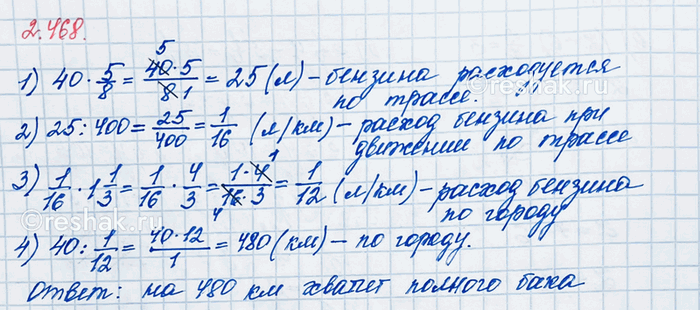 2.468.
1) 40 · 5/8 = 40·5/8 = 25 (л) – бензина расходуется
5
1
по трассе.
2) 25 : 400 = 25/400 = 1/16 (л/км) – расход бензина при
движении по трассе
3) 1/16 · 1 1/3 = 1/16 · 4/3 = 1·4/16·3 = 1/12 (л/км) – расход бензина
1
4
по городу
4) 40 : 1/12 = 40·12/1 = 480 (км) – по городу.
Ответ: на 480 км хватит полного бака
©reshak.ru